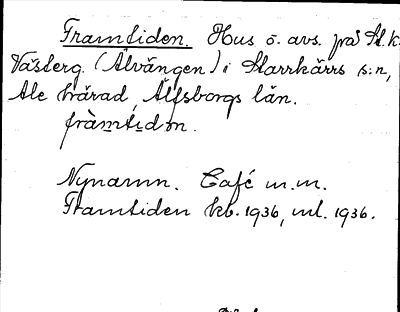 Framtiden. Hus o. avs. på St. k.
Västerg. (Älvängen) i Starrkärrs s:n,
Ale härad, Älfsborgs län.
fràmtıdən.
Nynamn. Café m.m.
Framtiden kb. 1936, ml. 1936.